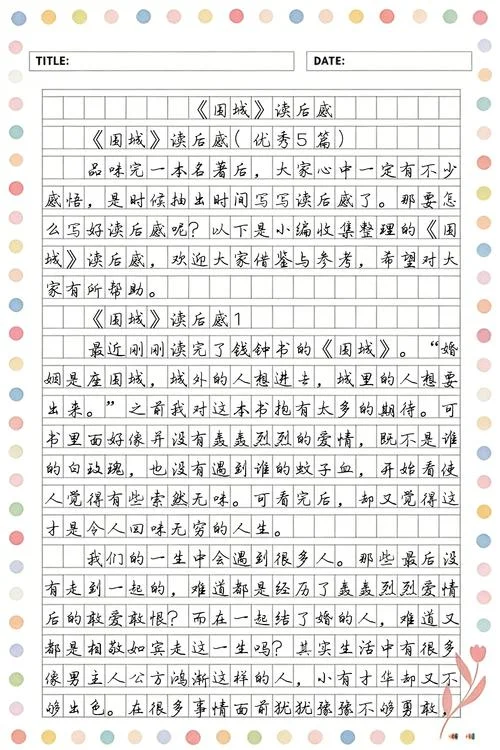 TITLE:
DATE:
《围城》读后感
《围城》读后感(优秀5篇)
品味完一本名著后，大家心中一定有不少
感悟，是时候抽出时间写写读后感了。那要怎
么写好读后感呢？以下是小编收集整理的《围
城》读后感，欢迎大家借鉴与参考，希望对大
家有所帮助。
《围城》读后感1
最近刚刚读完了钱钟书的《围城》。“婚
姻是座围城，城外的人想进去，城里的人想要
出来。”之前我对这本书抱有太多的期待。可
书里面好像并没有轰轰烈烈的爱情，既不是谁
的白玫瑰，也没有遇到谁的蚊子血，开始看使
人觉得有些索然无味。可看完后，却又觉得这
才是令人回味无穷的人生。
我们的一生中会遇到很多人。那些最后没
有走到一起的，难道都是经历了轰轰烈烈爱情
后的敢爱敢恨？而在一起结了婚的人，难道又
都是相敬如宾走这一生吗？其实生活中有很多
像男主人公方鸿渐这样的人，小有才华却又不
够出色。在很多事情面前犹犹豫豫不够勇敢，